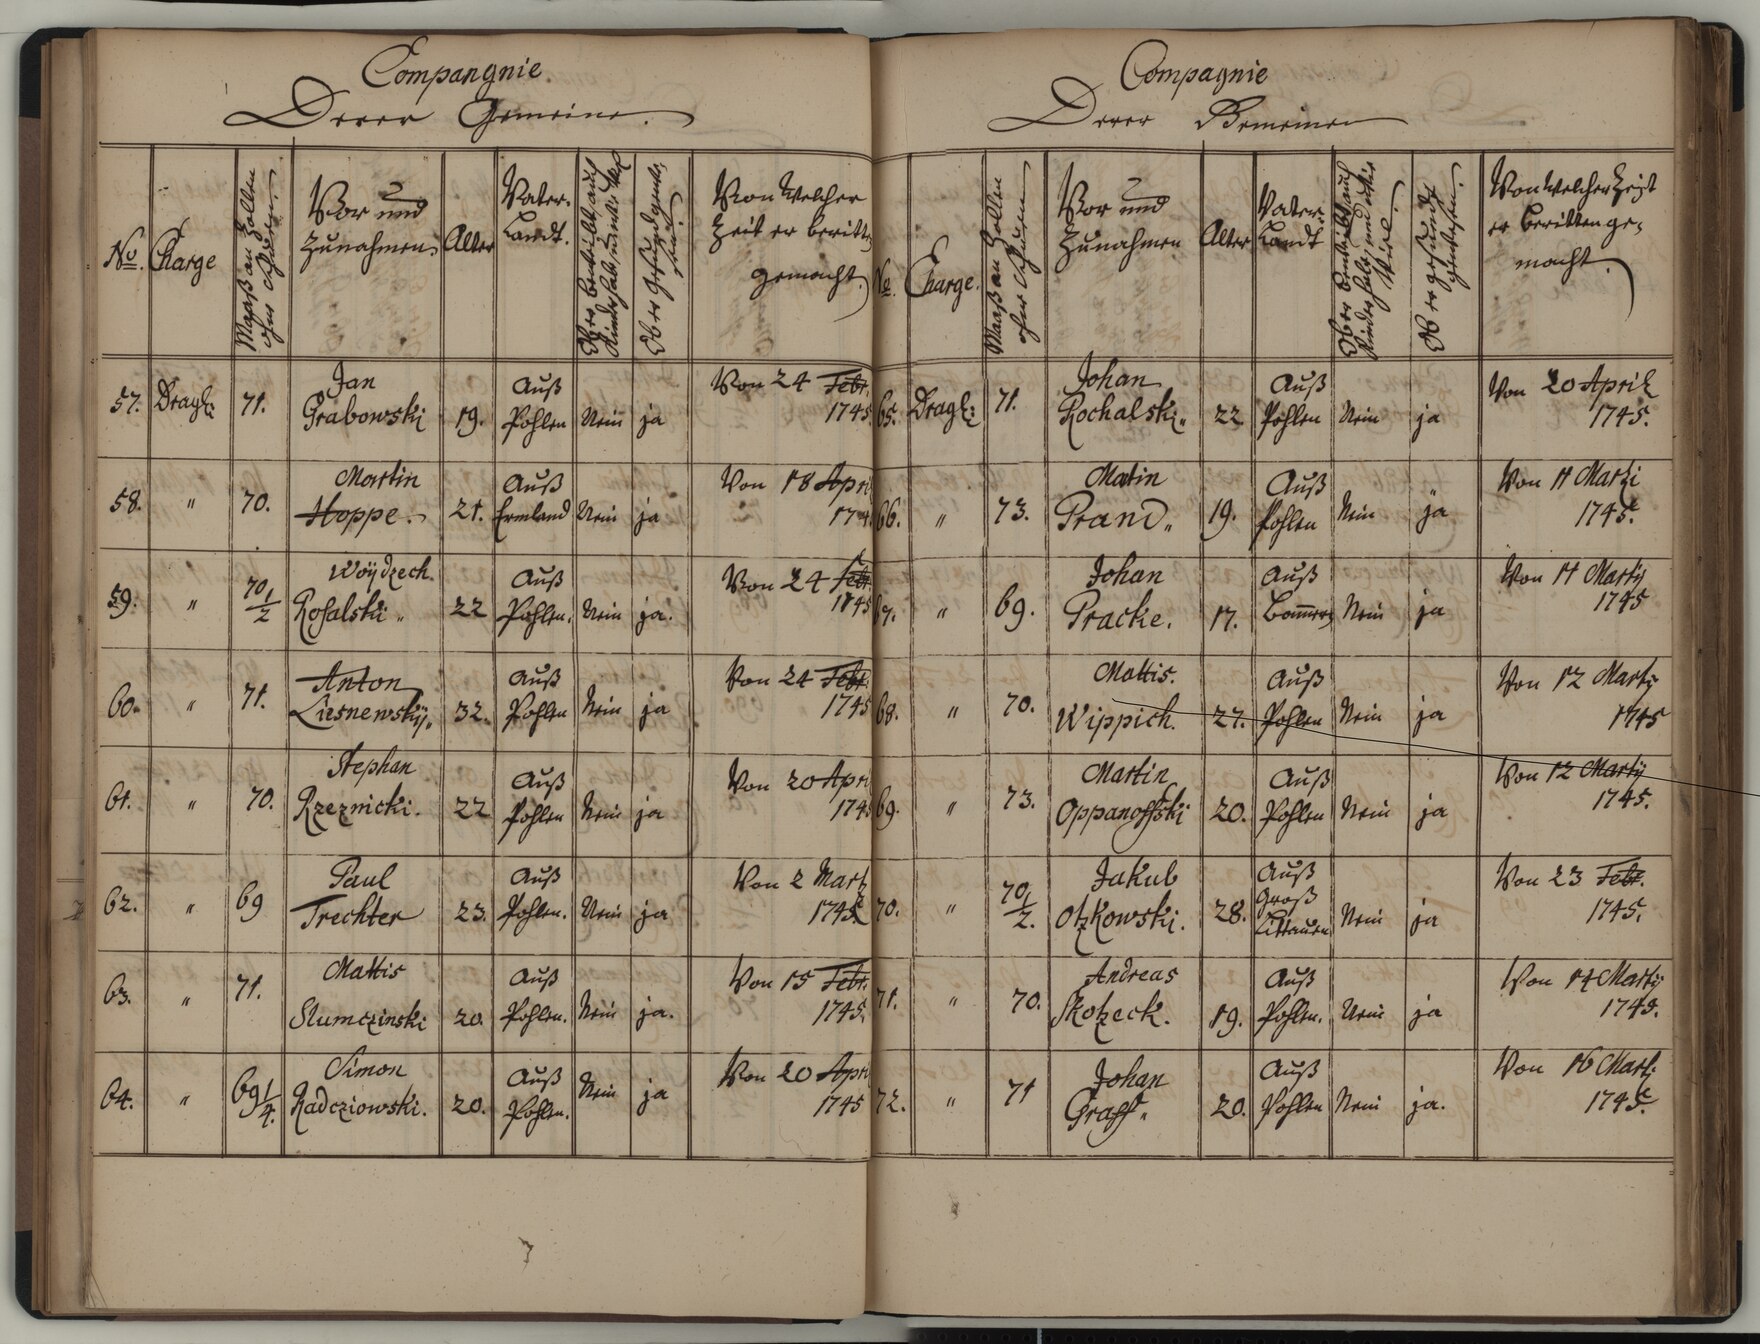 Compangnie.
Derer Gemeine.
No. Charge Maaß an Zollen ohne Schuhen Vor und Zunahmen. Alter Vater-Landt. Ob er beweibt, auch Kinder hab, und wie viel Ob er gesund Von Welcher Zeit er beritt gemacht.
57. Drag: 71. Jan Grabowski 19. Auß Pohlen Nein ja Von 24 Febr. 1745.
58. " 70. Martin Hoppe. 21. Auß Ermland Nein ja Von 18 Apri 174
59. " 70 1/2 Woÿdzech Rosalski " 22 Auß Pohlen. Nein ja. Von 24 Febr 1745
60. " 71. Anton Liesnewskÿ. 32. Auß Pohlen Nein ja Von 24 Febr. 1745
61. " 70. Stephan Rzeznicki. 22 Auß Pohlen Nein ja Von 20 Apri 174
62. " 69 Paul Trechter 23. Auß Pohlen. Nein ja Von 2 Mart 1745
63. " 71. Mattis Slumczinski 20. Auß Pohlen. Nein ja. Von 15 Febr. 1745.
64. " 69 1/4. Simon Radcziowski. 20. Auß Pohlen. Nein ja Von 20 Apri 1745
Compagnie
Derer Gemeinen
No. Charge. Maaß an Zollen ohne Schuhen Vor und Zunahmen Alter Vater-Landt Ob er beweibt auch Kinder habe, und wie Viel. Ob er gesundt Von Welcher Zeit er beritten ge, macht.
65. Drag: 71. Johan Rochalski. 22 Auß Pohlen Nein ja Von 20 April 1745.
66. " 73. Matin Prand " 19. Auß Pohlen Nein ja Von 11 Martzi 1745.
67. " 69. Johan Pracke. 17. Auß Nein ja Von 11 Martÿ 1745
68. " 70. Mattis. Wippich. 27. Auß Pohlen Nein ja Von 12 Martÿ 1745
69. " 73. Martin Oppanoffski 20. Auß Pohlen Nein ja Von 12 Martÿ 1745.
70. " 70 1/2. Jakub Otzkowski. 28. Auß Groß Littauen Nein ja Von 23 Febr. 1745.
71. " 70. Andreas Skotzeck. 19. Auß Pohlen. Nein ja Von 14 Martÿ 1745.
72. " 71 Johan Graff " 20. Auß Pohlen Nein ja. Von 16 Marti 1745.